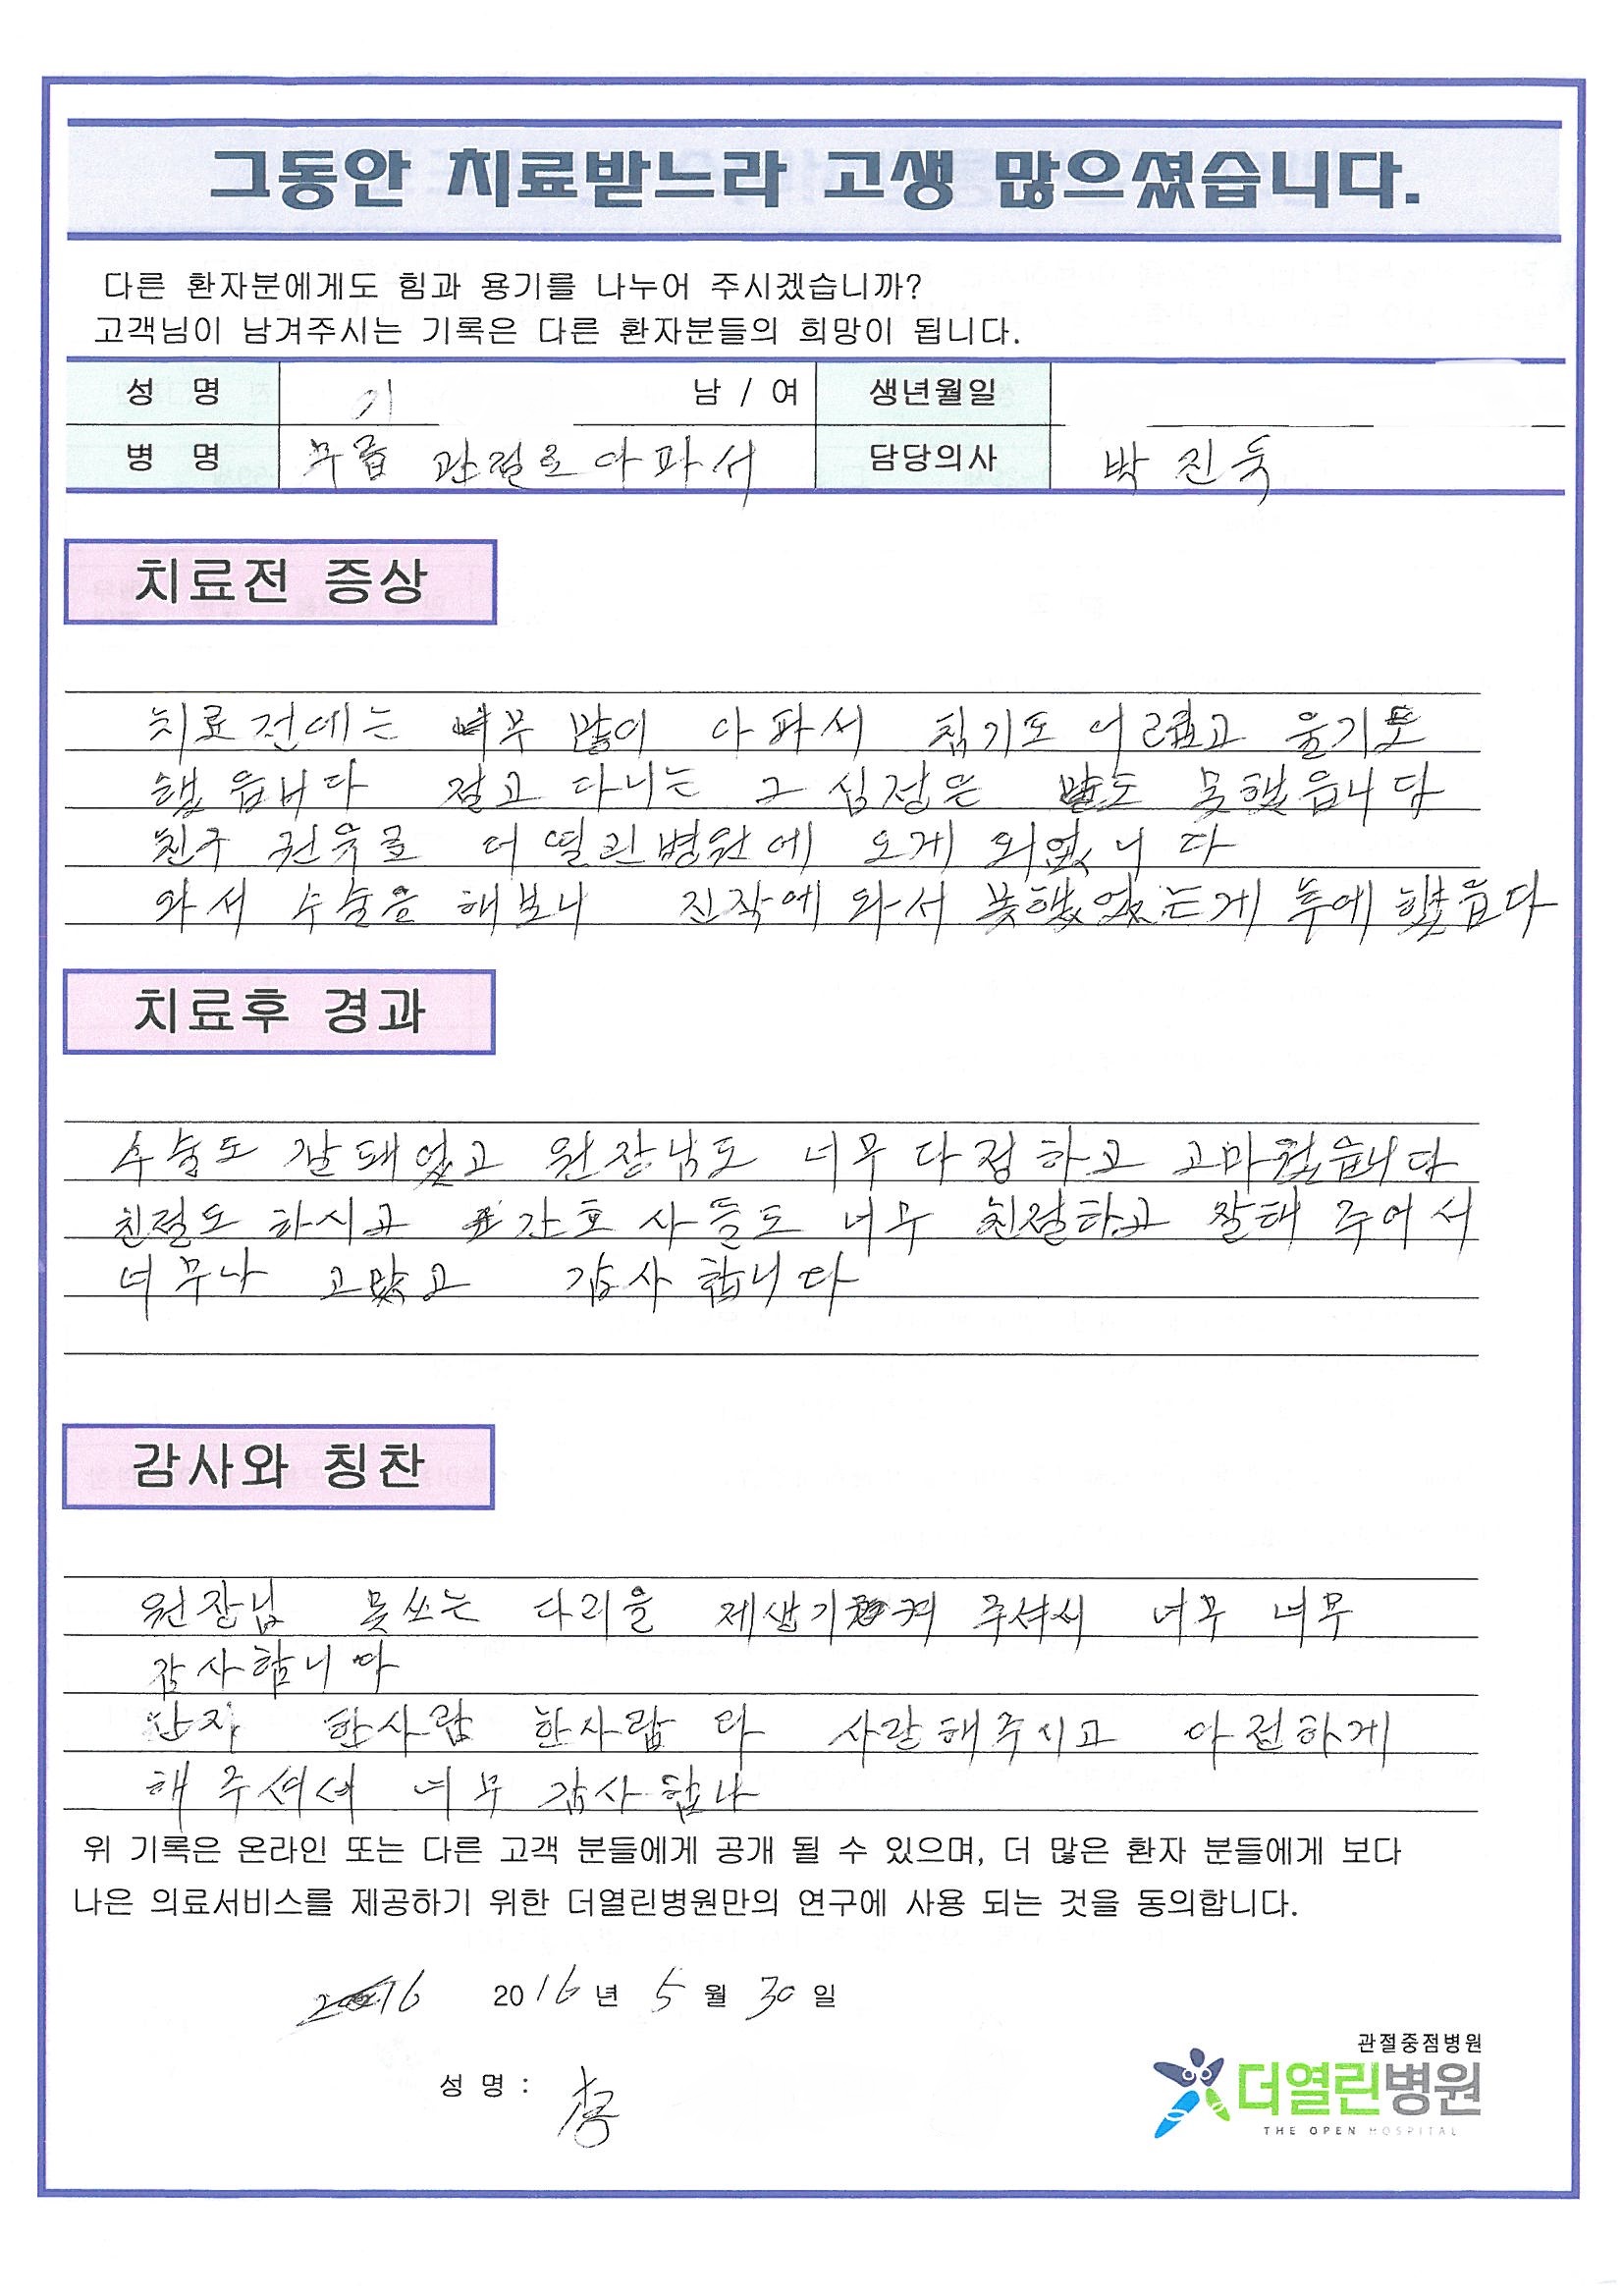 그동안 치료받느라 고생 많으셨습니다.
다른 환자분에게도 힘과 용기를 나누어 주시겠습니까?
고객님이 남겨주시는 기록은 다른 환자분들의 희망이 됩니다.
성 명 남 / 여 생년월일
병 명 무릎 관절로 아파서 담당의사 박진둑
치료전 증상
치료전에는 너무 많이 아파서 걷기도 어렵고 울기도
했읍니다 절고 다니는 그 심정은 말도 못했읍니다
친구 권유로 더 열린병원에 오게 되었니다
와서 수술을 해보니 진작에 와서 못했었는게 후에 했읍다
치료후 경과
수술도 잘돼었고 원장님도 너무 다정하고 고마웠읍니다
친절도 하시고 간호사들도 너무 친절하고 잘해 주어서
너무나 고맙고 감사합니다
감사와 칭찬
원장님 못쓰는 다리을 제생기 주셔서 너무 너무
감사합니다
환자 한사람 한사람 다 사랑해주시고 안전하게
해 주셔서 너무 감사합니
위 기록은 온라인 또는 다른 고객 분들에게 공개 될 수 있으며, 더 많은 환자 분들에게 보다
나은 의료서비스를 제공하기 위한 더열린병원만의 연구에 사용 되는 것을 동의합니다.
2016년 5월 30일
관절중점병원
성 명 :
더열린병원
THE OPEN HOSPITAL